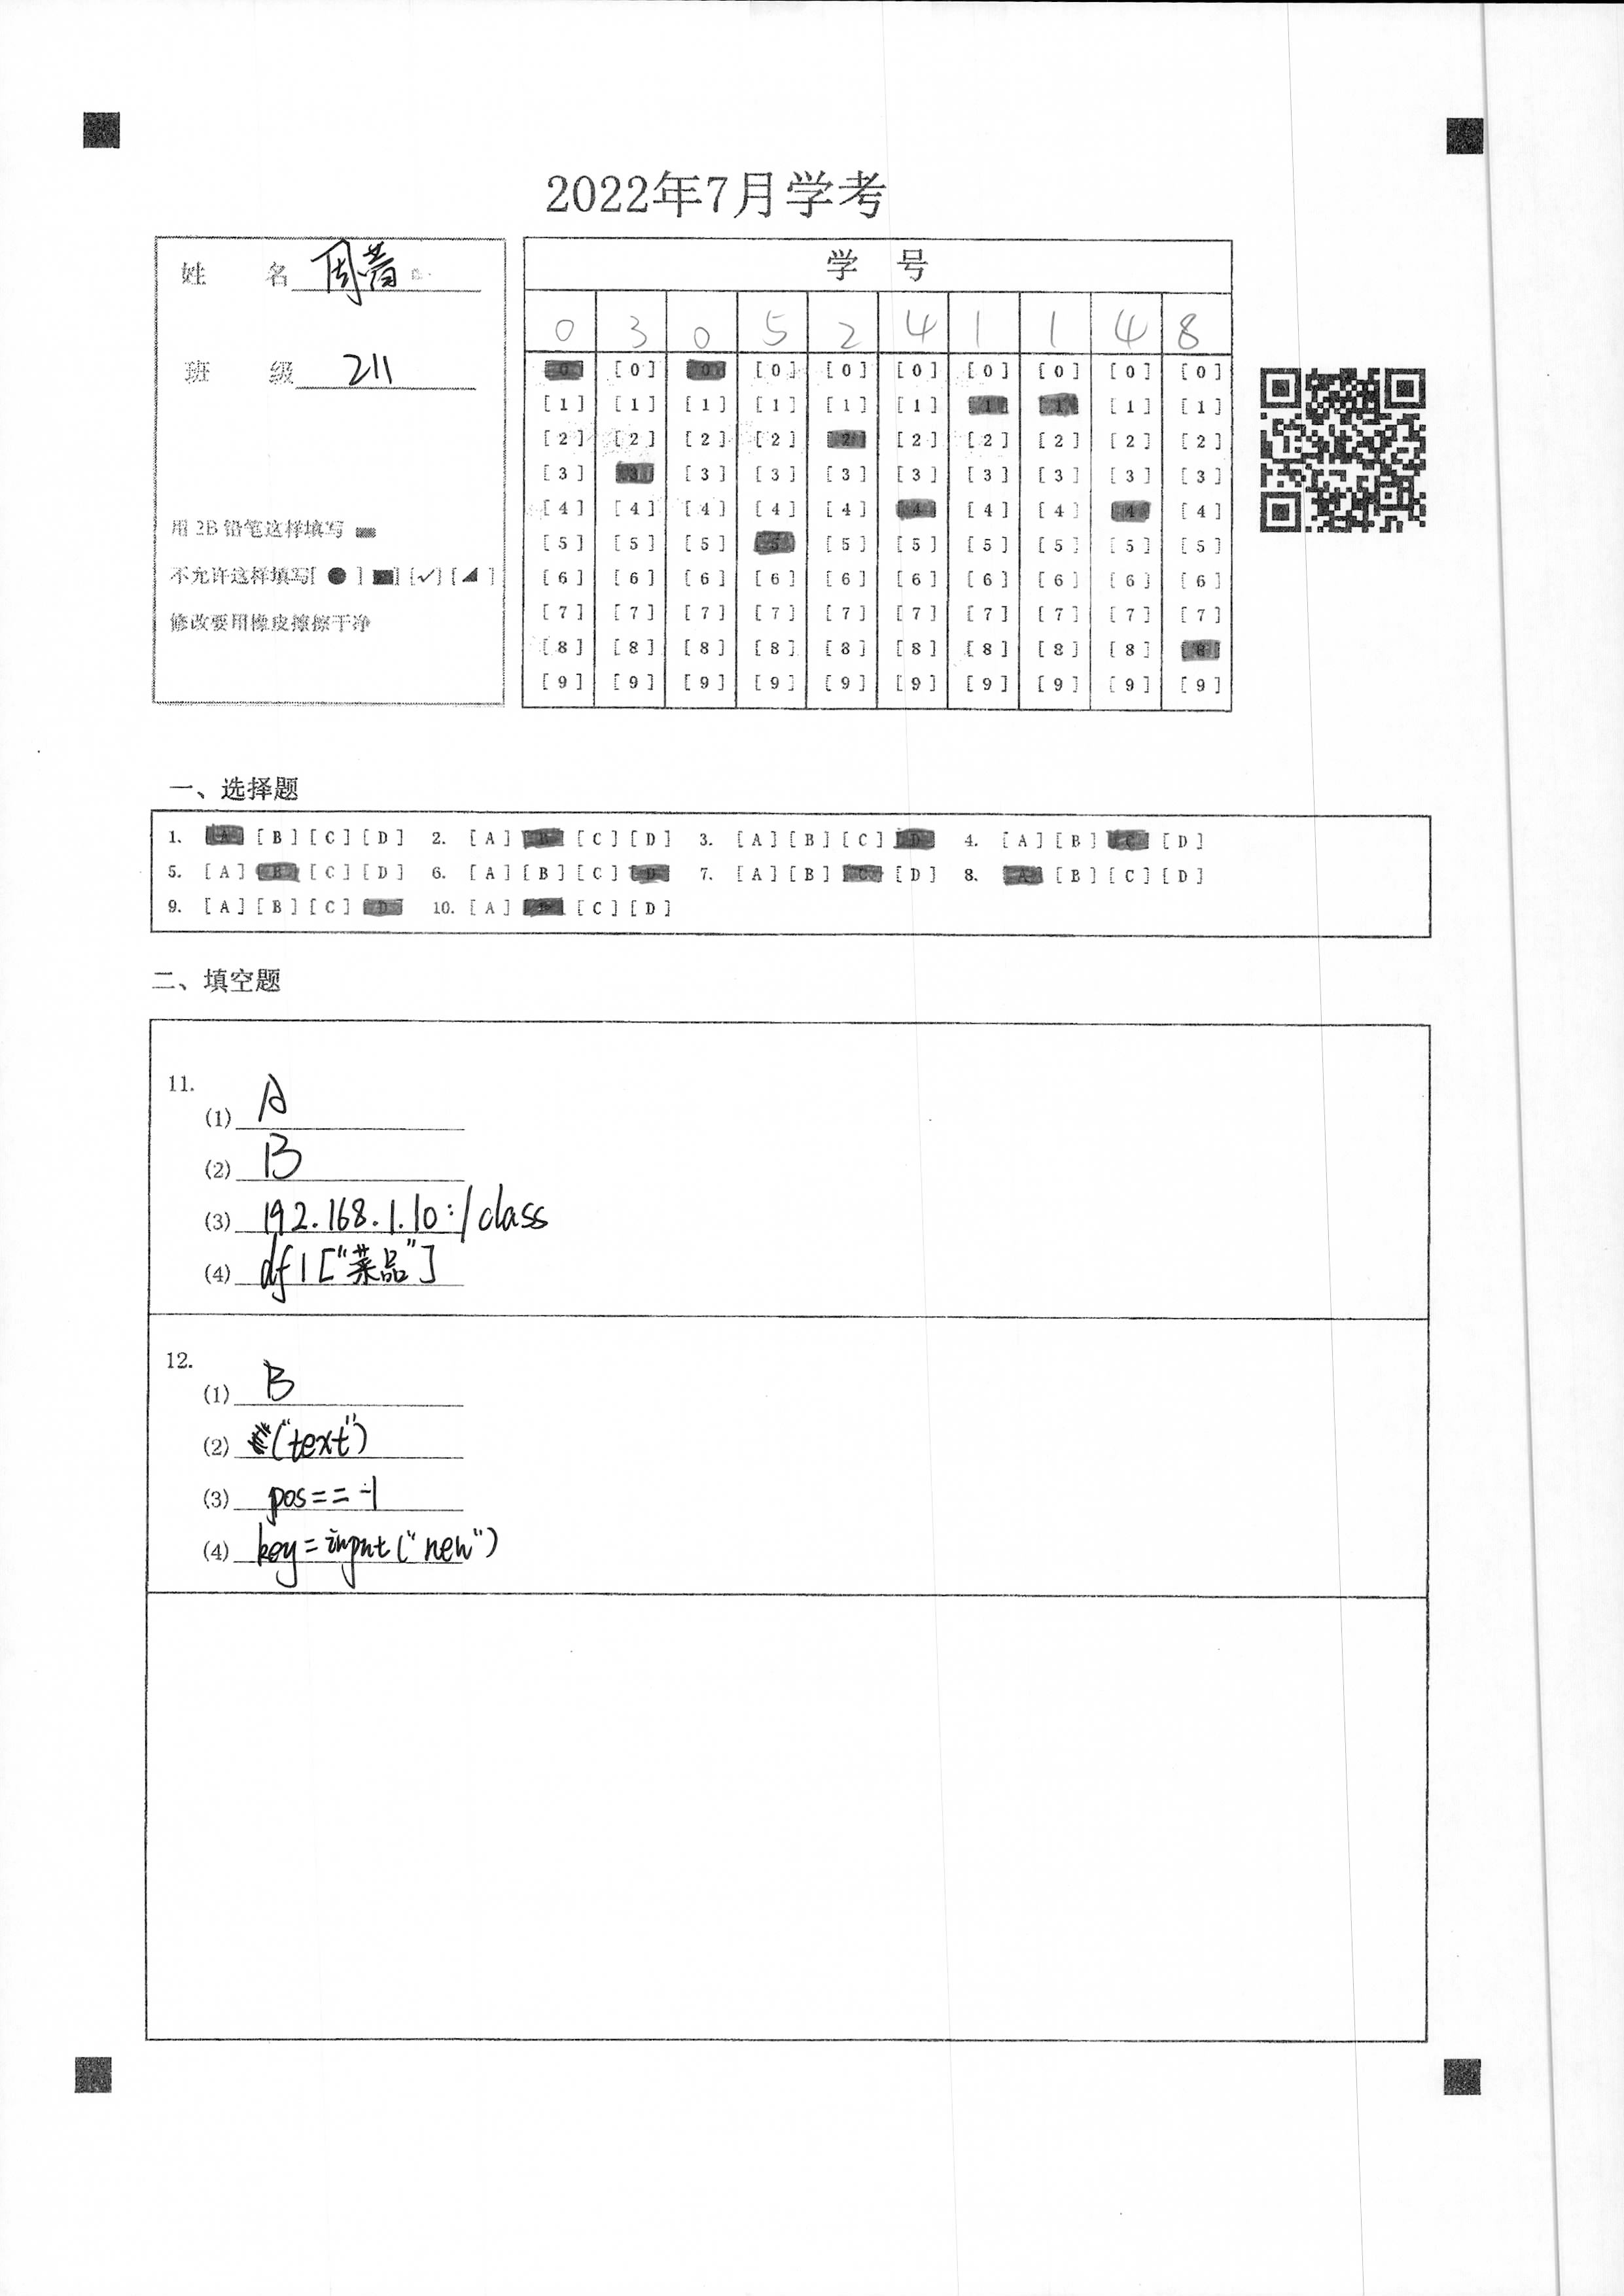 2022年7月学考
姓 名 周
班 级 211
用2B铅笔这样填写
不允许这样填写[ ● ] [■] [✓] [◢ ]
修改要用橡皮擦擦干净
学 号
0 3 0 5 2 4 1 1 4 8
[0] [0] [0] [0] [0] [0] [0] [0] [0] [0]
[1] [1] [1] [1] [1] [1] [1] [1] [1] [1]
[2] [2] [2] [2] [2] [2] [2] [2] [2] [2]
[3] [3] [3] [3] [3] [3] [3] [3] [3] [3]
[4] [4] [4] [4] [4] [4] [4] [4] [4] [4]
[5] [5] [5] [5] [5] [5] [5] [5] [5] [5]
[6] [6] [6] [6] [6] [6] [6] [6] [6] [6]
[7] [7] [7] [7] [7] [7] [7] [7] [7] [7]
[8] [8] [8] [8] [8] [8] [8] [8] [8] [8]
[9] [9] [9] [9] [9] [9] [9] [9] [9] [9]
一、选择题
1. [A] [B] [C] [D] 2. [A] [B] [C] [D] 3. [A] [B] [C] [D] 4. [A] [B] [C] [D]
5. [A] [B] [C] [D] 6. [A] [B] [C] [D] 7. [A] [B] [C] [D] 8. [A] [B] [C] [D]
9. [A] [B] [C] [D] 10. [A] [B] [C] [D]
二、填空题
11.
(1) A
(2) B
(3) 192.168.1.10:/class
(4) df1["菜品"]
12.
(1) B
(2) ("text")
(3) pos==-1
(4) key=input("new")